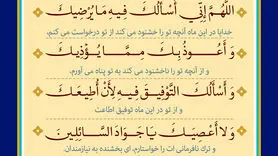 اللَّهُمَّ إِنِّي أَسْأَلُكَ فِيهِ مَا يُرْضِيكَ
خدایا در این ماه آنچه تو را خشنود می کند از تو درخواست می کنم،
وَ أَعُوذُ بِكَ مِمَّا يُؤْذِيكَ
و از آنچه تو را ناخشنود می کند به تو پناه می آورم.
وَ أَسْأَلُكَ التَّوْفِيقَ فِيهِ لِأَنْ أُطِيعَكَ
و از تو در این ماه توفیق اطاعت
وَ لا أَعْصِيَكَ يَا جَوَادَ السَّائِلِينَ
و ترک نافرمانی ات را خواستارم، ای بخشنده به نیازمندان.